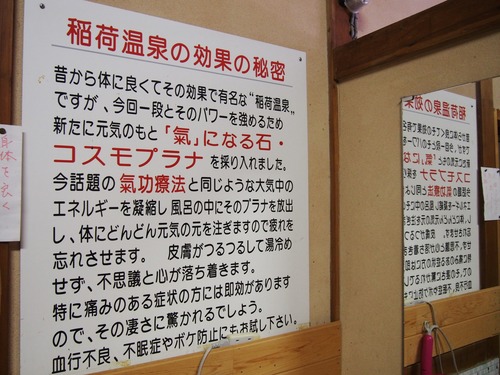 稲荷温泉の効果の秘密
昔から体に良くてその効果で有名な“稲荷温泉”
ですが、今回一段とそのパワーを強めるため
新たに元気のもと「氣」になる石・
コスモプラナを採り入れました。
今話題の氣功療法と同じような大気中の
エネルギーを凝縮し風呂の中にそのプラナを放出
し、体にどんどん元気の元を注ぎますので疲れを
忘れさせます。 皮膚がつるつるして湯冷め
せず、不思議と心が落ち着きます。
特に痛みのある症状の方には即効があります
ので、その凄さに驚かれるでしょう。
血行不良、不眠症やボケ防止にもお試し下さい。
身体を良く